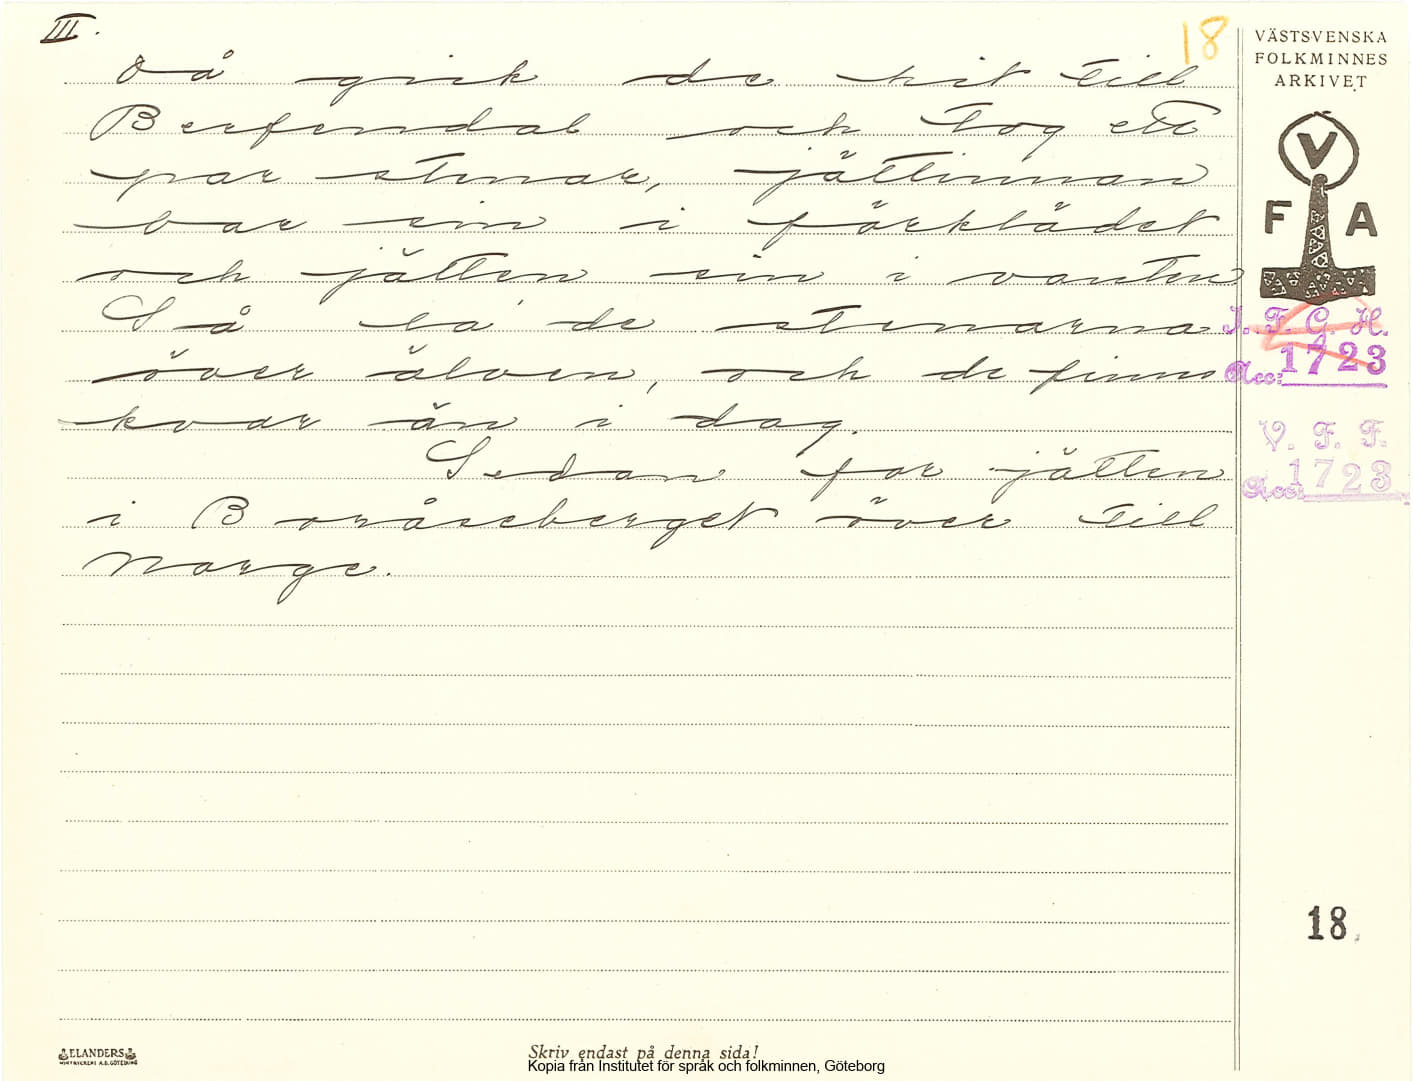 III.
18
Då gick de hit till
Berfendal och tog ett
par stenar, jättinnan
bar sin i förklädet
och jätten sin i vanten
Så la' de stenarna
över älven, och de finns
kvar än i dag.
Sedan for jätten
i Boråseberget över till
Norge.
VÄSTSVENSKA
FOLKMINNES
ARKIVET
V
F A
I. F. G. H.
Acc: 1723
V. F. F.
Acc: 1723
18.
ELANDERS
BOKTRYCKERI A.B. GÖTEBORG
Skriv endast på denna sida!
Kopia från Institutet för språk och folkminnen, Göteborg